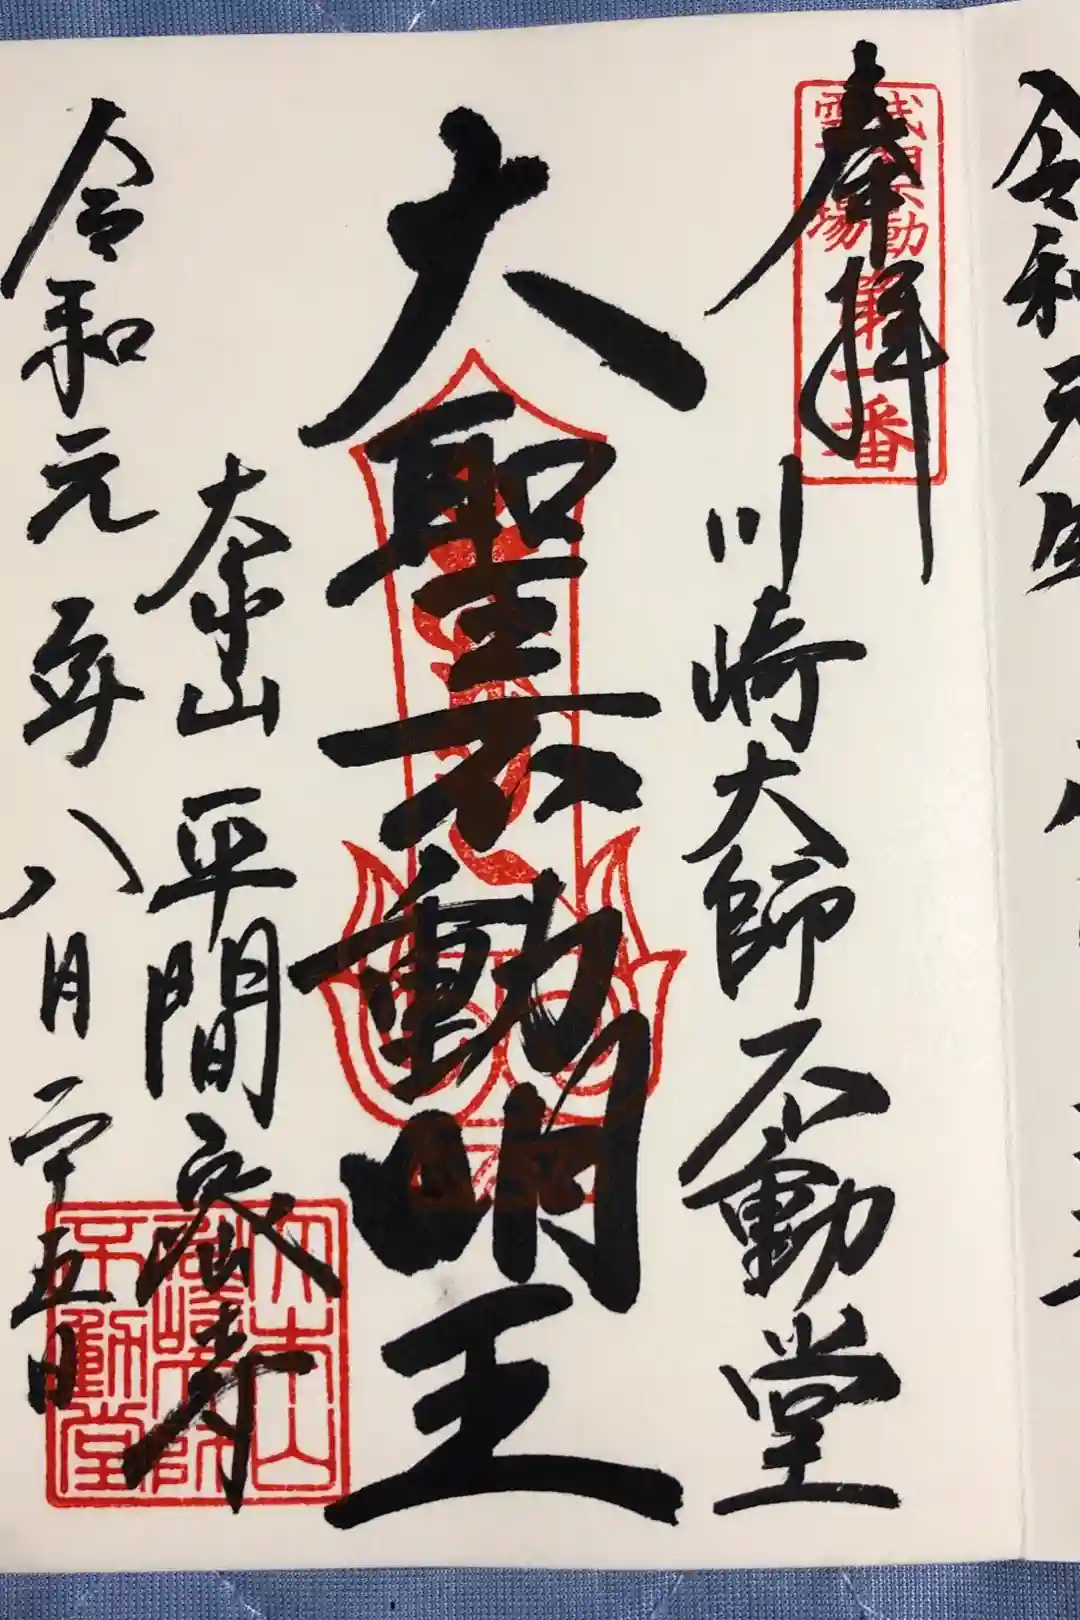 令和元年
奉拝
武相不動
霊場
第一番
川崎大師不動堂
大聖不動明王
大本山
平間寺
令和元年八月二十五日
大本山
川崎大師
不動堂